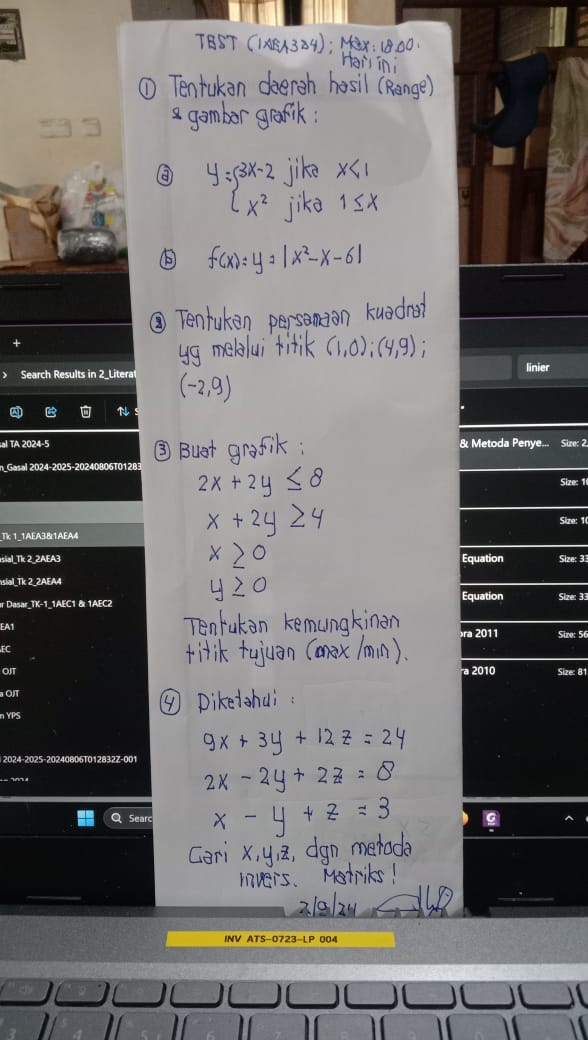 TEST (1AEA3&4); Max: 18.00.
Hari ini
① Tentukan daerah hasil (Range)
& gambar grafik :
ⓐ y = { 3x-2 jika x<1
x² jika 1≤x
ⓑ f(x) = y = |x²-x-6|
② Tentukan persamaan kuadrat
yg melalui titik (1,0); (4,9);
(-2,9)
③ Buat grafik :
2x + 2y ≤ 8
x + 2y ≥ 4
x ≥ 0
y ≥ 0
Tentukan kemungkinan
titik tujuan (max/min).
④ Diketahui :
9x + 3y + 12z = 24
2x - 2y + 2z = 8
x - y + z = 3
Cari x,y,z, dgn metoda
invers. Matriks!
2/9/24
Search Results in 2_Literat
linier
al TA 2024-5
n_Gasal 2024-2025-20240806T01283
Tk 1_1AEA3&1AEA4
sial_Tk 2_2AEA3
sial_Tk 2_2AEA4
r Dasar_TK-1_1AEC1 & 1AEC2
EA1
EC
OJT
a OJT
n YPS
2024-2025-20240806T012832Z-001
& Metoda Penye... Size: 2,
Size: 16
Size: 10
Equation Size: 33
Equation Size: 33
ra 2011 Size: 56
a 2010 Size: 81
Searc
INV ATS-0723-LP 004